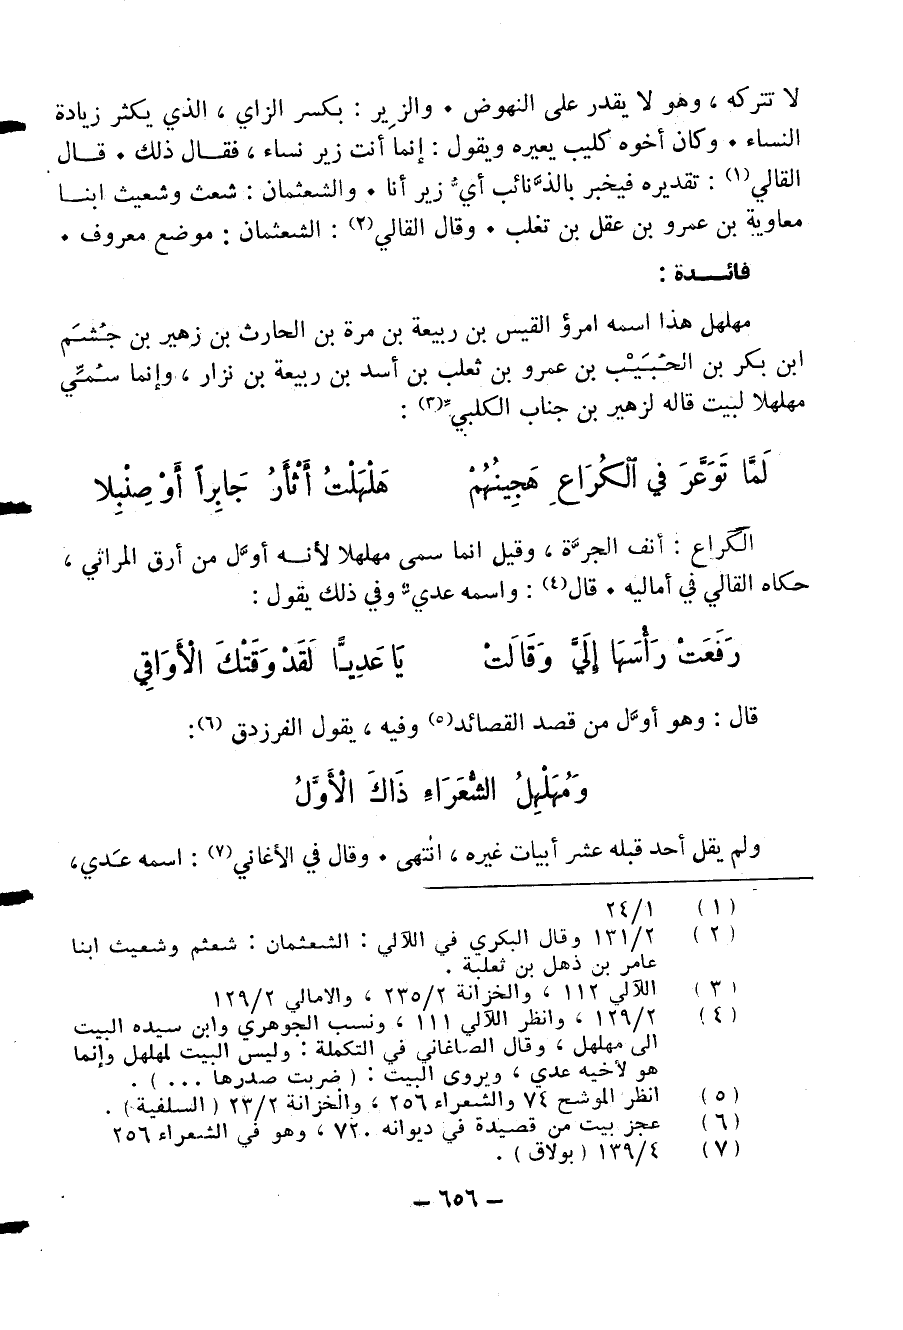 لا تتركه ، وهو لا يقدر على النهوض • والزِير : بكسر الزاي ، الذي يكثر زيادة
النساء • وكان أخوه كليب يعيره ويقول : إنما أنت زير نساء ، فقال ذلك • قال
القالي(١) : تقديره فيخبر بالذَّنائب أيُّ زير أنا • والشعثمان : شعث وشعيث ابنا
معاوية بن عمرو بن عقل بن تغلب • وقال القالي(٢) : الشعثمان : موضع معروف •
فائدة :
مهلهل هذا اسمه امرؤ القيس بن ربيعة بن مرة بن الحارث بن زهير بن جُشَم
ابن بكر بن الحُبَيْب بن عمرو بن ثعلب بن أسد بن ربيعة بن نزار ، وإنما سُمِّي
مهلهلا لبيت قاله لزهير بن جناب الكلبي(٣) :
لَمَّا تَوَعَّرَ فِي الْكُرَاعِ هَجِينُهُمْ هَلْهَلْتُ أَثْأَرُ جَابِراً أَوْ صِنْبِلا
الكُراع : أنف الجرَّة ، وقيل انما سمى مهلهلا لأنه أوَّل من أرق المراثي ،
حكاه القالي في أماليه • قال(٤) : واسمه عديٌّ وفي ذلك يقول :
رَفَعَتْ رَأْسَهَا إِلَيَّ وَقَالَتْ يَا عَدِيًّا لَقَدْ وَقَتْكَ الْأَوَاقِي
قال : وهو أوَّل من قصد القصائد(٥) وفيه ، يقول الفرزدق (٦):
وَمُهَلْهِلُ الشُّعَرَاءِ ذَاكَ الْأَوَّلُ
ولم يقل أحد قبله عشر أبيات غيره ، انتهى • وقال في الأغاني(٧) : اسمه عَدي،
(١) ٢٤/١
(٢) ١٣١/٢ وقال البكري في اللآلي : الشعثمان : شعثم وشعيث ابنا
عامر بن ذهل بن ثعلبة .
(٣) اللآلي ١١٢ ، والخزانة ٢٣٥/٢ ، والامالي ١٢٩/٢
(٤) ١٢٩/٢ ، وانظر اللآلي ١١١ ، ونسب الجوهري وابن سيده البيت
الى مهلهل ، وقال الصاغاني في التكملة : وليس البيت لمهلهل وإنما
هو لأخيه عدي ، ويروى البيت : ( ضربت صدرها ... ) .
(٥) انظر الموشح ٧٤ والشعراء ٢٥٦ ، والخزانة ٢٣/٢ ( السلفية ) .
(٦) عجز بيت من قصيدة في ديوانه ٧٢٠ ، وهو في الشعراء ٢٥٦
(٧) ١٣٩/٤ ( بولاق ) .
– ٦٥٦ –